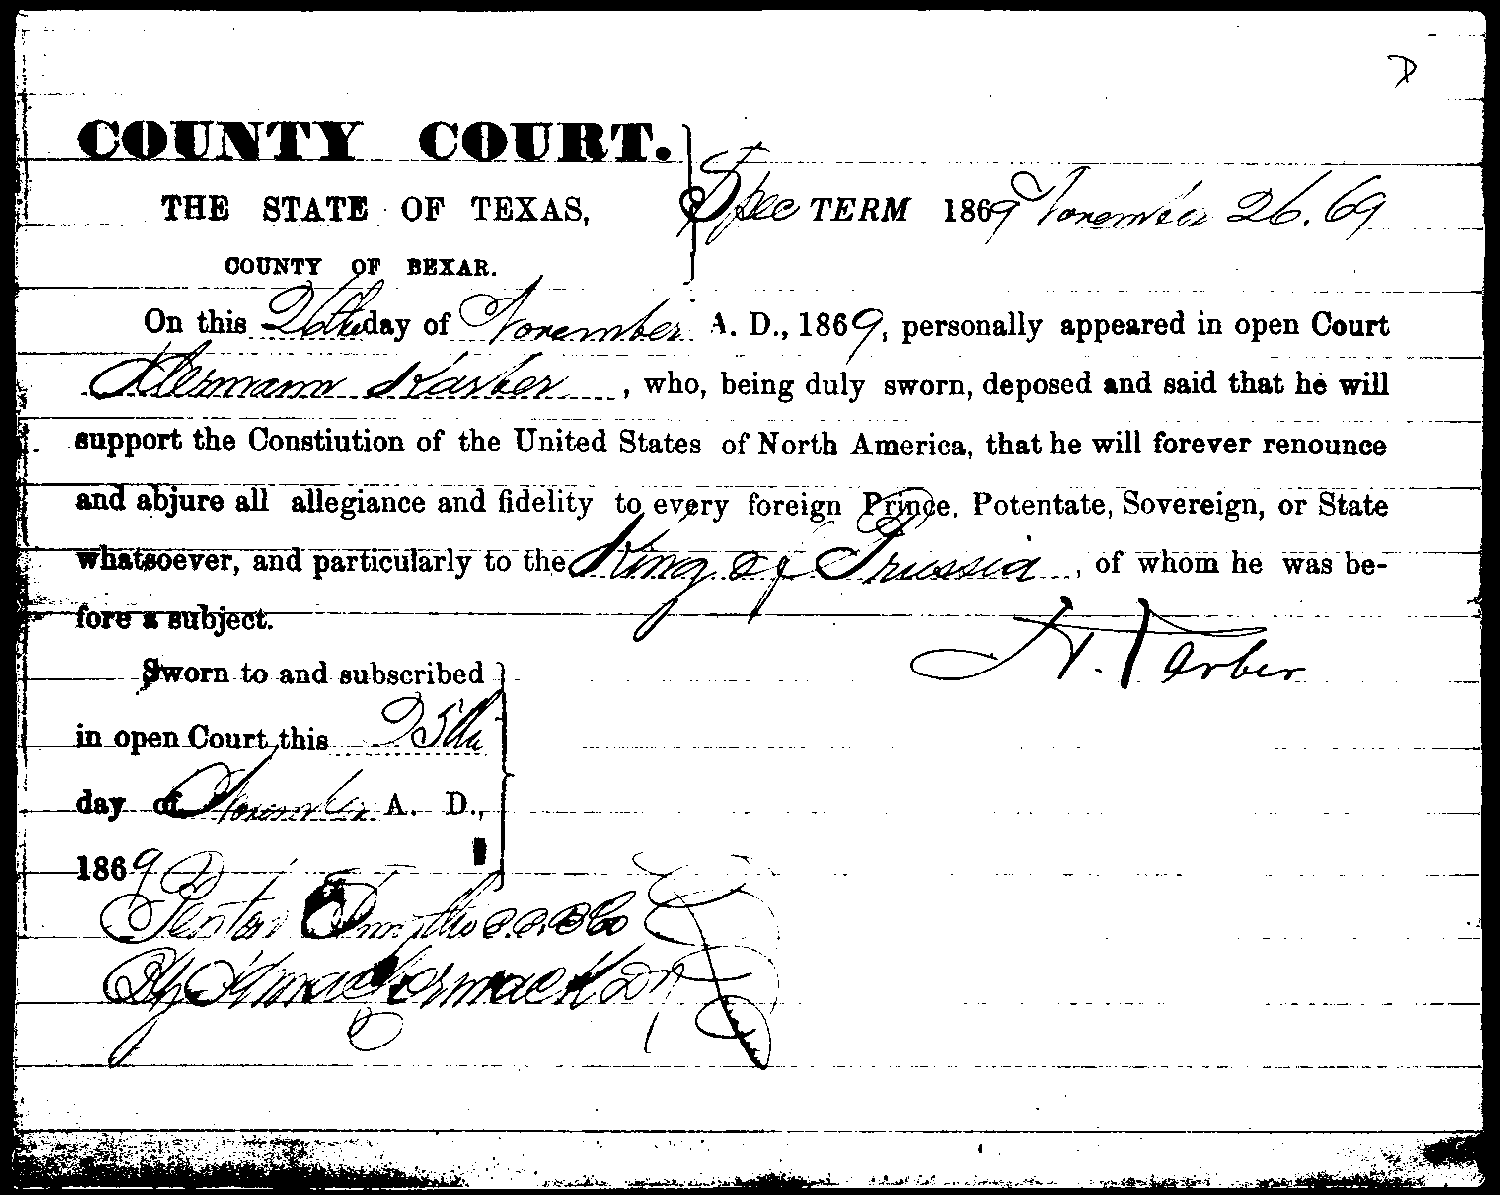 D
COUNTY COURT.
THE STATE OF TEXAS,
Spec TERM 1869 November 26. 69
COUNTY OF BEXAR.
On this 26th day of November A. D., 1869, personally appeared in open Court
Hermann Karber, who, being duly sworn, deposed and said that he will
support the Constiution of the United States of North America, that he will forever renounce
and abjure all allegiance and fidelity to every foreign Prince, Potentate, Sovereign, or State
whatsoever, and particularly to the King of Prussia, of whom he was be-
fore a subject.
H. Karber
Sworn to and subscribed
in open Court this 25th
day of November A. D.,
1869
By